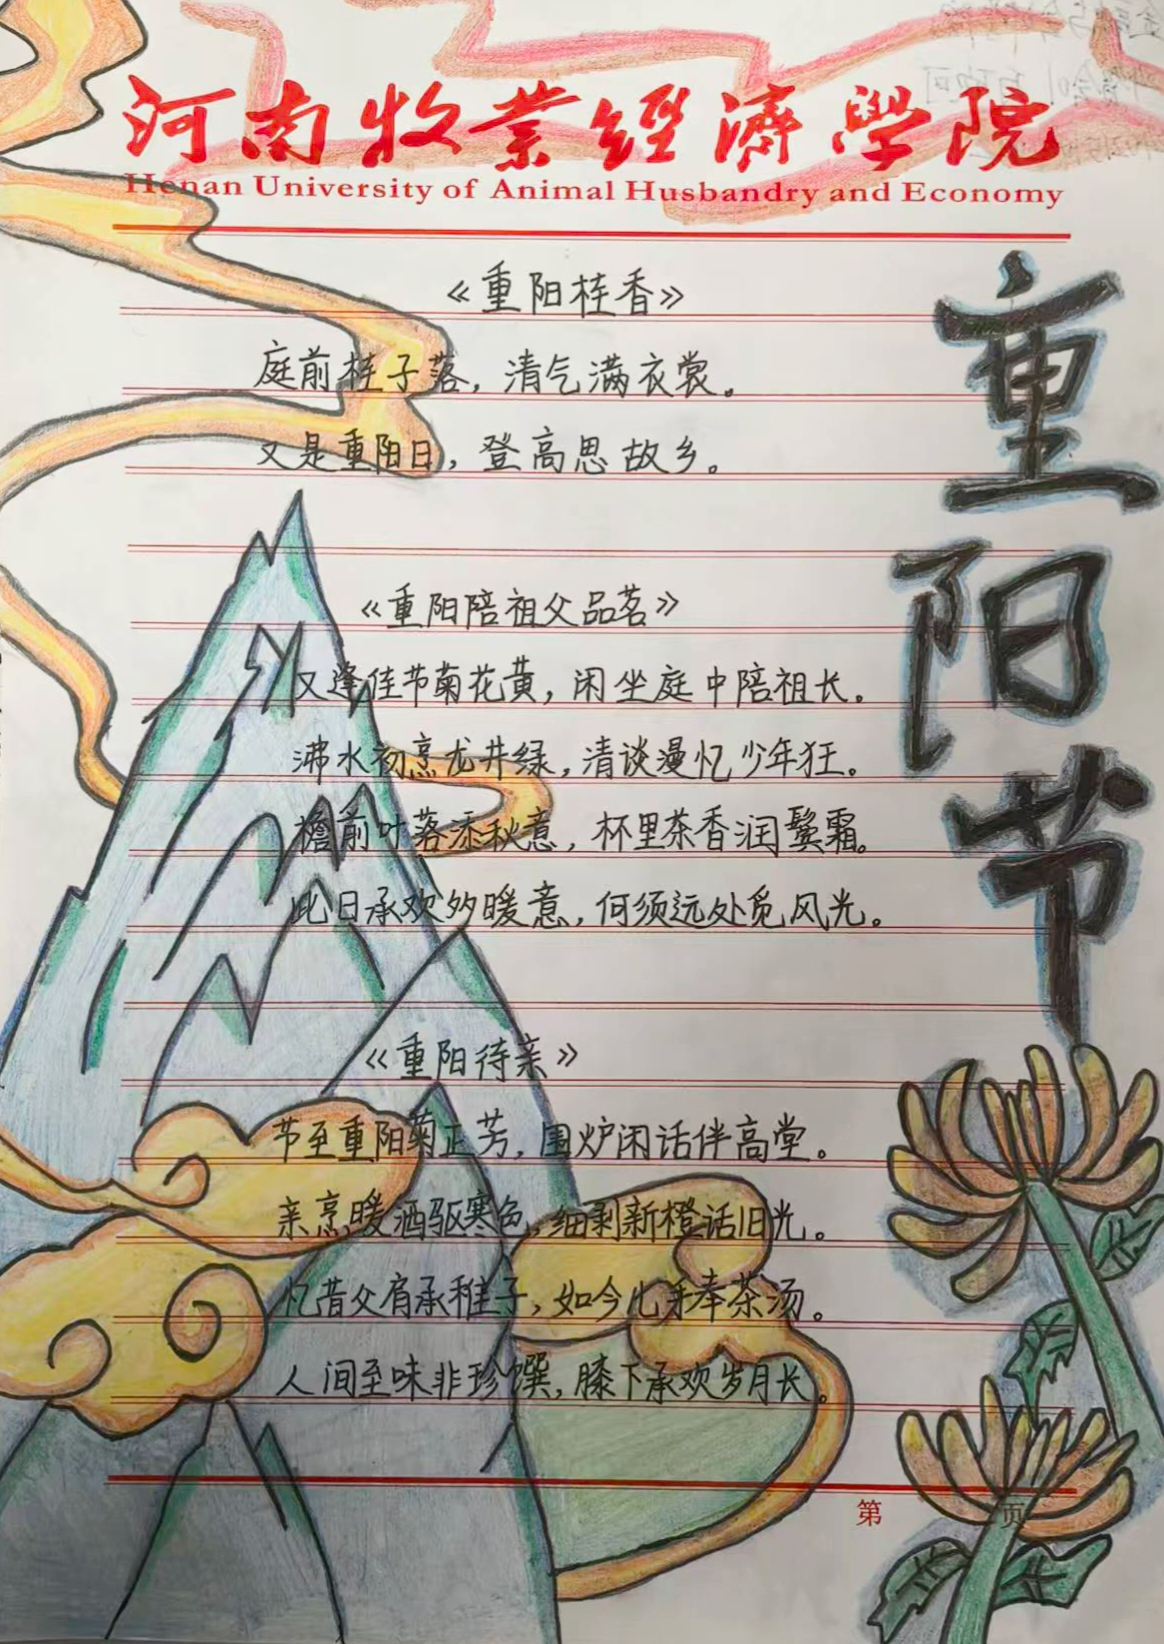 河南牧業經濟學院
Henan University of Animal Husbandry and Economy
重阳节
《重阳桂香》
庭前桂子落，清气满衣裳。
又是重阳日，登高思故乡。
《重阳陪祖父品茗》
又逢佳节菊花黄，闲坐庭中陪祖长。
沸水初烹龙井绿，清谈漫忆少年狂。
檐前叶落添秋意，杯里茶香润鬓霜。
此日承欢多暖意，何须远处觅风光。
《重阳待亲》
节至重阳菊正芳，围炉闲话伴高堂。
亲烹暖酒驱寒色，细剥新橙话旧光。
忆昔父肩承稚子，如今儿手奉茶汤。
人间至味非珍馔，膝下承欢岁月长。
第 页